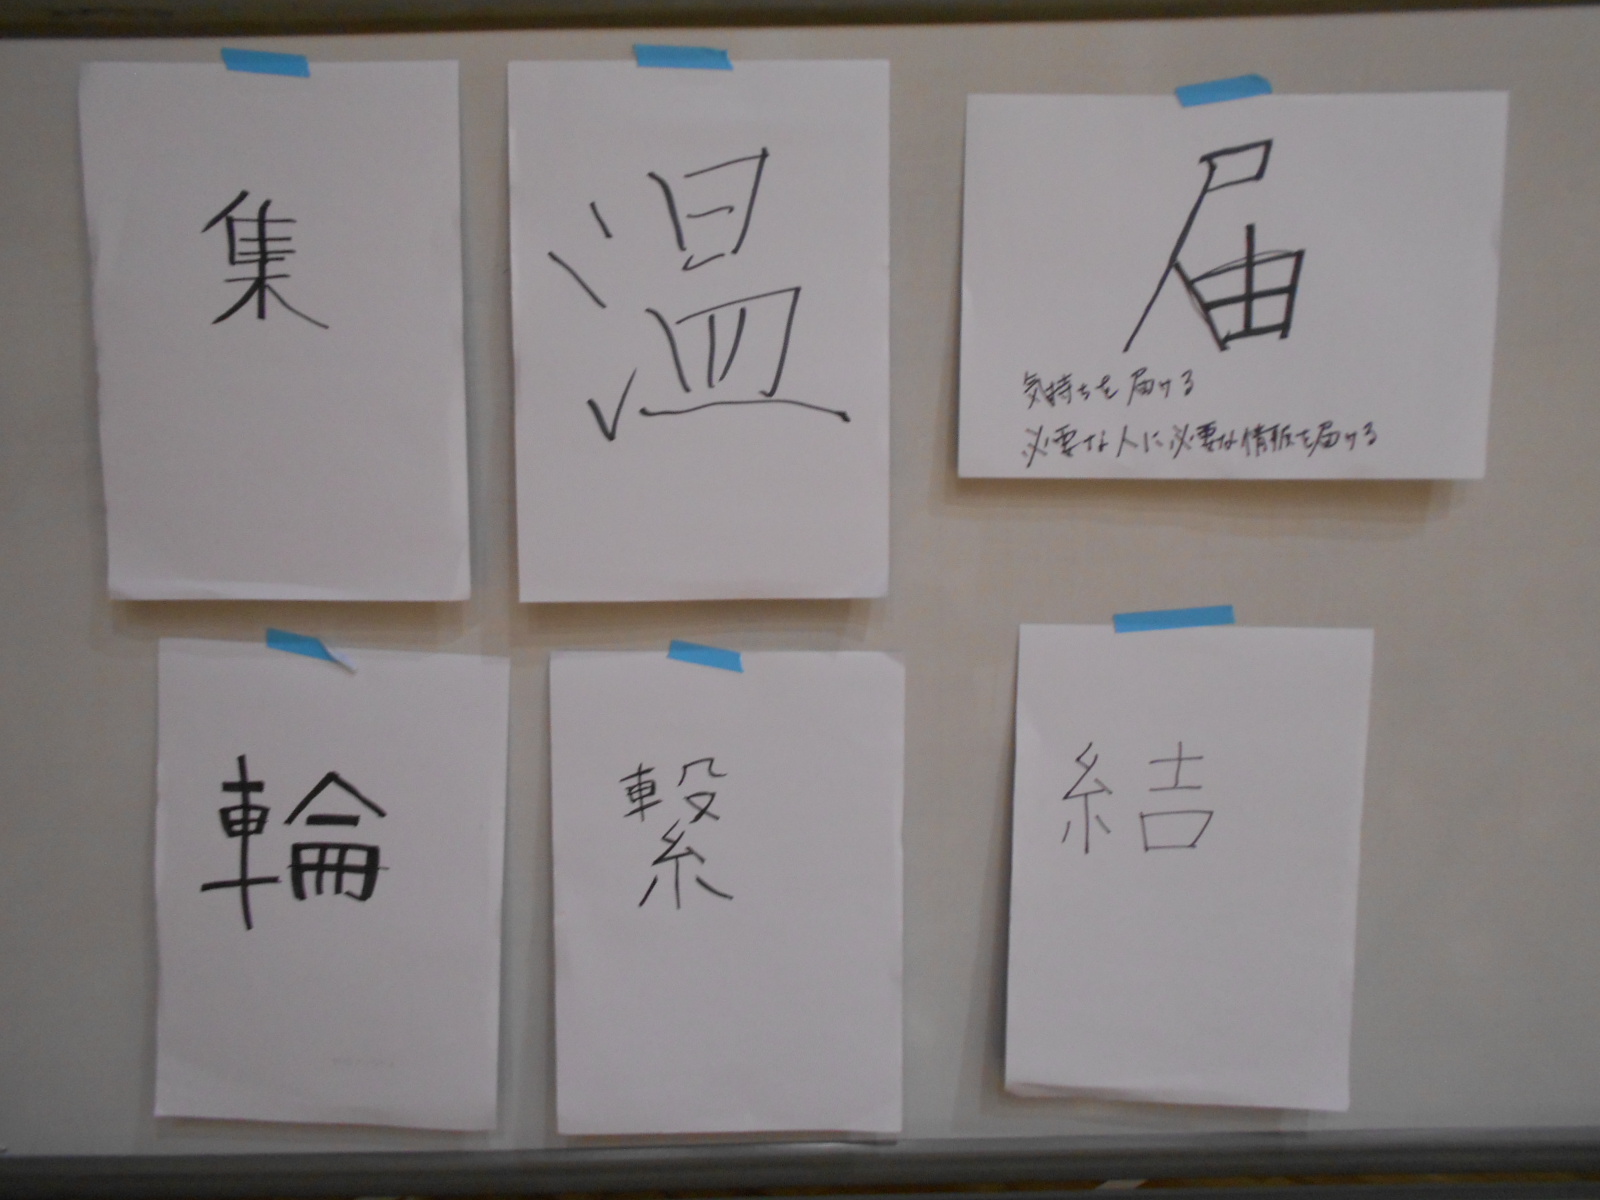 集
温
届
気持ちを届ける
必要な人に必要な情報を届ける
輪
繋
結